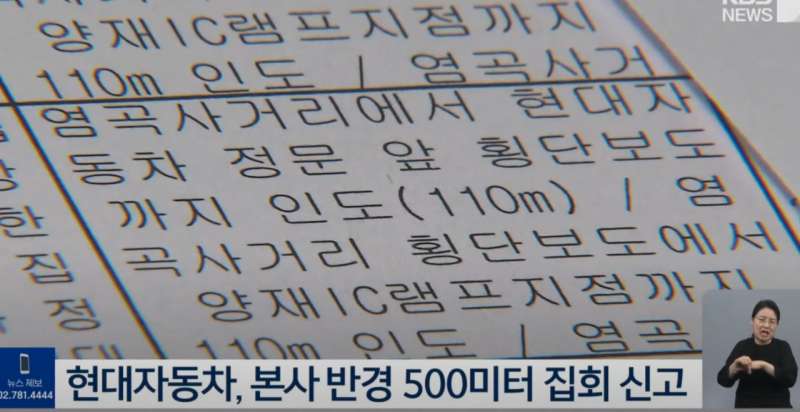 KBS
NEWS
양재IC램프지점까지
110m 인도 / 염곡사거
염곡사거리에서 현대자
동차 정문 앞 횡단보도
한 까지 인도(110m) / 염
집 곡사거리 횡단보도에서
정 양재IC램프지점까지
110m 인도 / 염곡
뉴스 제보
02.781.4444
현대자동차, 본사 반경 500미터 집회 신고